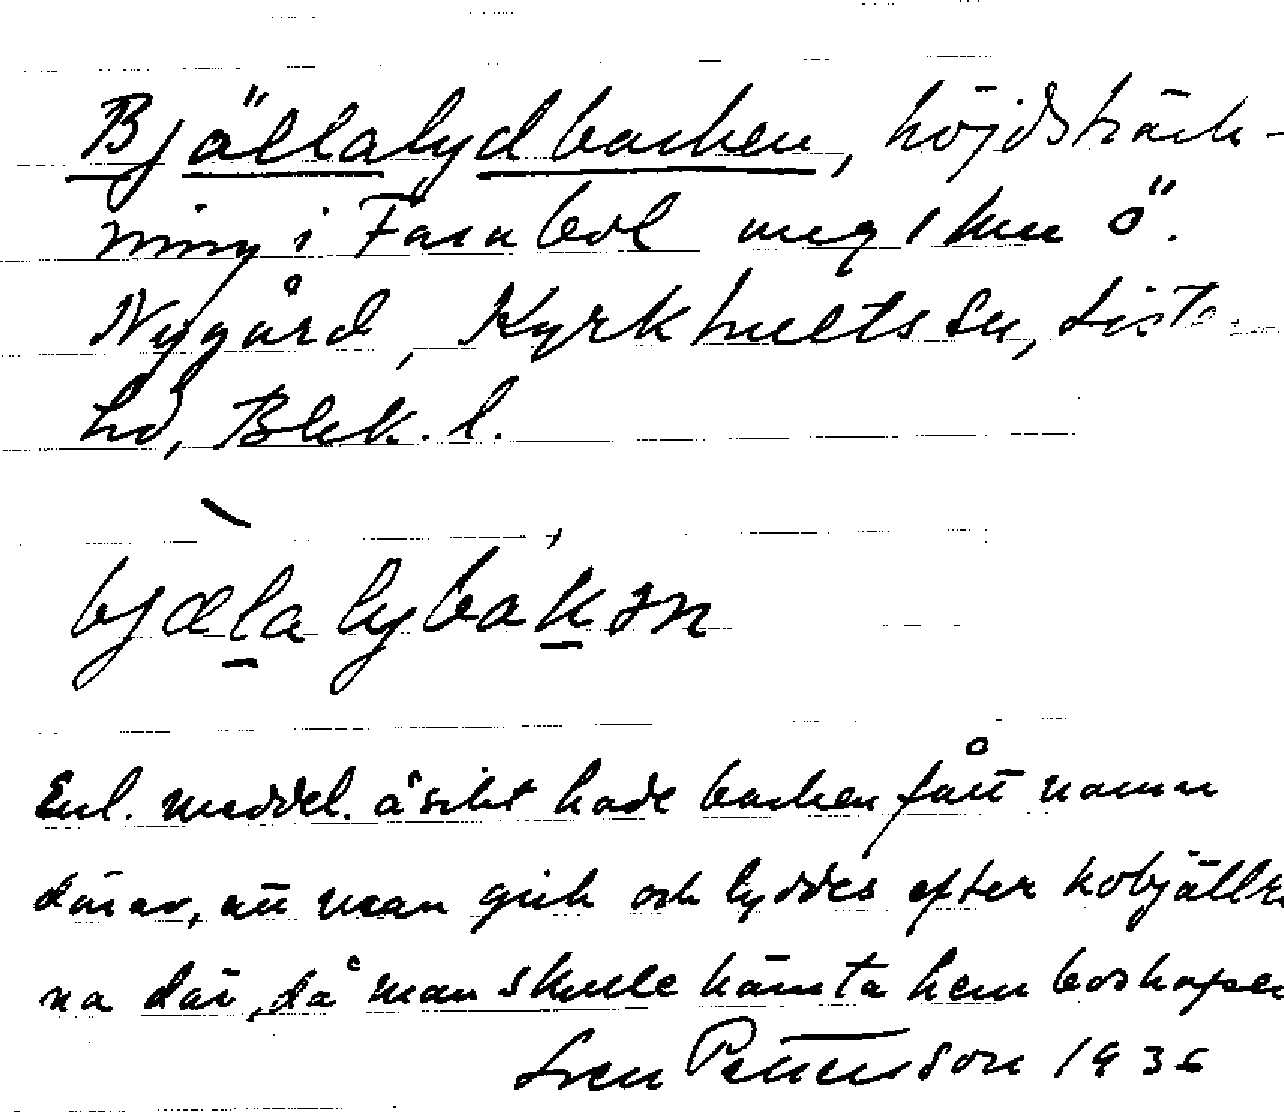 Bjällalydbacken, höjdsträck-
ning i Farabol meg 1 km ö.
Nygård, Kyrkhults sn, Lister
hd, Blek. l.
bjælalybákən
Enl. meddel. åsikt hade backen fått namn
därav, att man gick och lyddes efter kobjällr
na där, då man skulle hämta hem boskapen
Sven Pettersson 1936